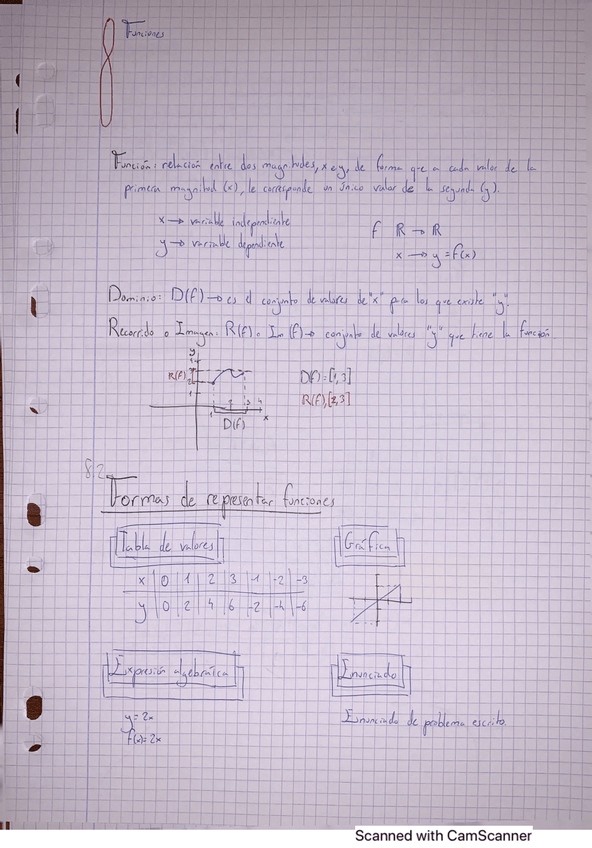 8 Funciones
Función: relación entre dos magnitudes, x e y, de forma que a cada valor de la
primera magnitud (x), le corresponde un único valor de la segunda (y).
x → variable independiente
y → variable dependiente
f ℝ → ℝ
x → y = f(x)
Dominio: D(f) → es el conjunto de valores de "x" para los que existe "y".
Recorrido o Imagen: R(f) o Im(f) → conjunto de valores "y" que tiene la función
y
R(f)
2
1
1 2 3 4 x
D(f)
D(f) = [1,3]
R(f), [2,3]
8.2
Formas de representar funciones
Tabla de valores
x | 0 | 1 | 2 | 3 | -1 | -2 | -3
y | 0 | 2 | 4 | 6 | -2 | -4 | -6
Gráfica
Expresión algebráica
y = 2x
f(x) = 2x
Enunciado
Enunciado de problema escrito.
Scanned with CamScanner